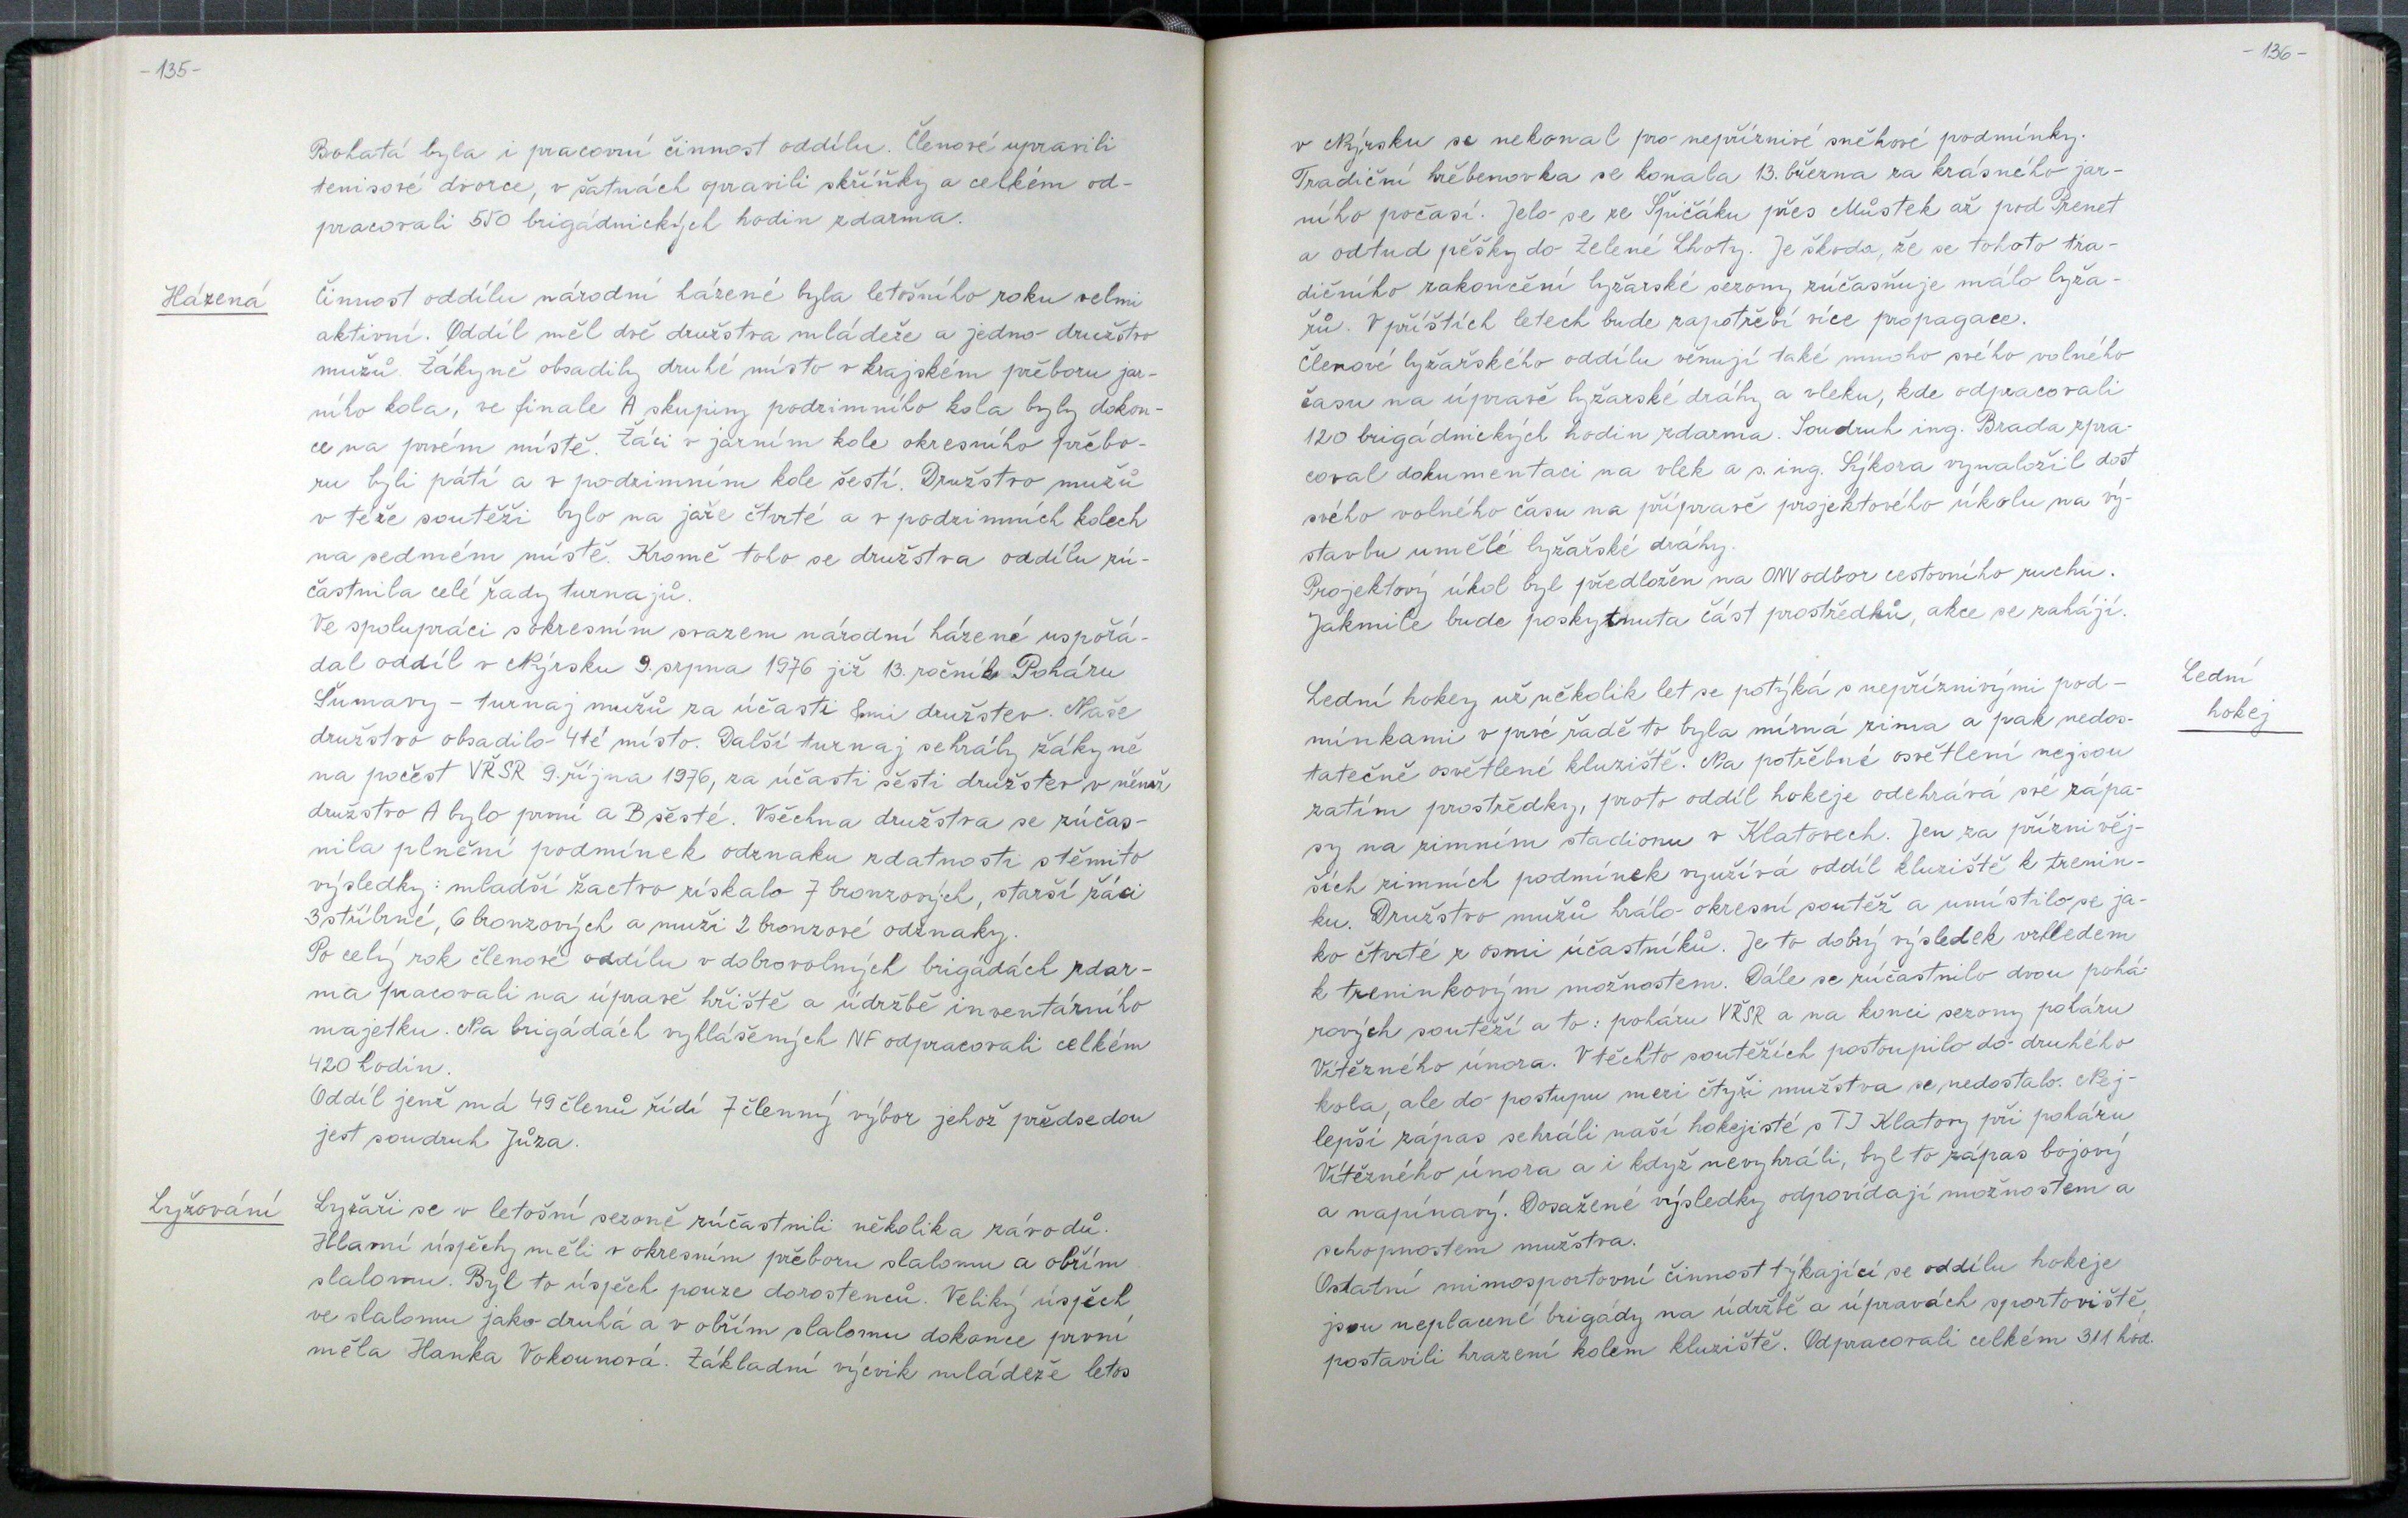 -135-
Bohatá byla i pracovní činnost oddílu. Členové upravili
tenisové dvorce, v šatnách opravili skříňky a celkém od-
pracovali 550 brigádnických hodin zdarma.
Házená
Činnost oddílu národní házené byla letošního roku velmi
aktivní. Oddíl měl dvě družstva mládeže a jedno družstvo
mužů. Žákyně obsadily druhé místo v krajském přeboru jar-
ního kola, ve finale A skupiny podzimního kola byly dokon-
ce na prvém místě. Žáci v jarním kole okresního přebo-
ru byli pátí a v podzimním kole šestí. Družstvo mužů
v téže soutěži bylo na jaře čtvrté a v podzimních kolech
na sedmém místě. Kromě toho se družstva oddílu zú-
častnila celé řady turnajů.
Ve spolupráci s okresním svazem národní házené uspořá-
dal oddíl v Nýrsku 9. srpna 1976 již 13. ročník Poháru
Šumavy - turnaj mužů za účasti 8mi družstev. Naše
družstvo obsadilo 4té místo. Další turnaj sehrály žákyně
na počest VŘSR 9. října 1976, za účasti šesti družstev v němž
družstvo A bylo první a B šesté. Všechna družstva se zúčas-
nila plnění podmínek odznaku zdatnosti s těmito
výsledky: mladší žactvo získalo 7 bronzových, starší žáci
3 stříbrné, 6 bronzových a muži 2 bronzové odznaky.
Po celý rok členové oddílu v dobrovolných brigádách zdar-
ma pracovali na úpravě hřiště a údržbě inventárního
majetku. Na brigádách vyhlášených NF odpracovali celkém
420 hodin.
Oddíl jenž má 49 členů řídí 7 členný výbor jehož předsedou
jest soudruh Jůza.
Lyžování
Lyžaři se v letošní sezoně zúčastnili několika závodů.
Hlavní úspěchy měli v okresním přeboru slalomu a obřím
slalomu. Byl to úspěch pouze dorostenců. Veliký úspěch
ve slalomu jako druhá a v obřím slalomu dokonce první
měla Hanka Vokounová. Základní výcvik mládeže letos
-136-
v Nýrsku se nekonal pro nepříznivé sněhové podmínky.
Tradiční hřebenovka se konala 13. března za krásného jar-
ního počasí. Jelo se ze Špičáku přes Můstek až pod Prenet
a odtud pěšky do Zelené Lhoty. Je škoda, že se tohoto tra-
dičního zakončení lyžarské sezony zúčasňuje málo lyža-
řů. V příštích letech bude zapotřebí více propagace.
Členové lyžařského oddílu věnují také mnoho svého volného
času na úpravě lyžarské dráhy a vleku, kde odpracovali
120 brigádnických hodin zdarma. Soudruh ing. Brada zpra-
coval dokumentaci na vlek a s. ing. Sýkora vynaložil dost
svého volného času na přípravě projektového úkolu na vý-
stavbu umělé lyžařské dráhy.
Projektový úkol byl předložen na ONV odbor cestovního ruchu.
Jakmile bude poskytnuta část prostředků, akce se zahájí.
Lední
hokej
Lední hokey už několik let se potýká s nepříznivými pod-
mínkami v prvé řadě to byla mírná zima a pak nedos-
tatečně osvětlené kluziště. Na potřebné osvětlení nejsou
zatím prostředky, proto oddíl hokeje odehrává své zápa-
sy na zimním stadionu v Klatovech. Jen za příznivěj-
ších zimních podmínek využívá oddíl kluziště k trenin-
ku. Družstvo mužů hrálo okresní soutěž a umístilo se ja-
ko čtvrté z osmi účastníků. Je to dobrý výsledek vzhledem
k treninkovým možnostem. Dále se zúčastnilo dvou pohá-
rových soutěží a to: poháru VŘSR a na konci sezony poháru
Vítězného února. V těchto soutěžích postoupilo do druhého
kola, ale do postupu mezi čtyři mužstva se nedostalo. Nej-
lepší zápas sehráli naší hokejisté s TJ Klatovy při poháru
Vítězného února a i když nevyhráli, byl to zápas bojový
a napínavý. Dosažené výsledky odpovídají možnostem a
schopnostem mužstva.
Ostatní mimosportovní činnost týkající se oddílu hokeje
jsou neplacené brigády na údržbě a úpravách sportoviště,
postavili hrazení kolem kluziště. Odpracovali celkém 311 hod.